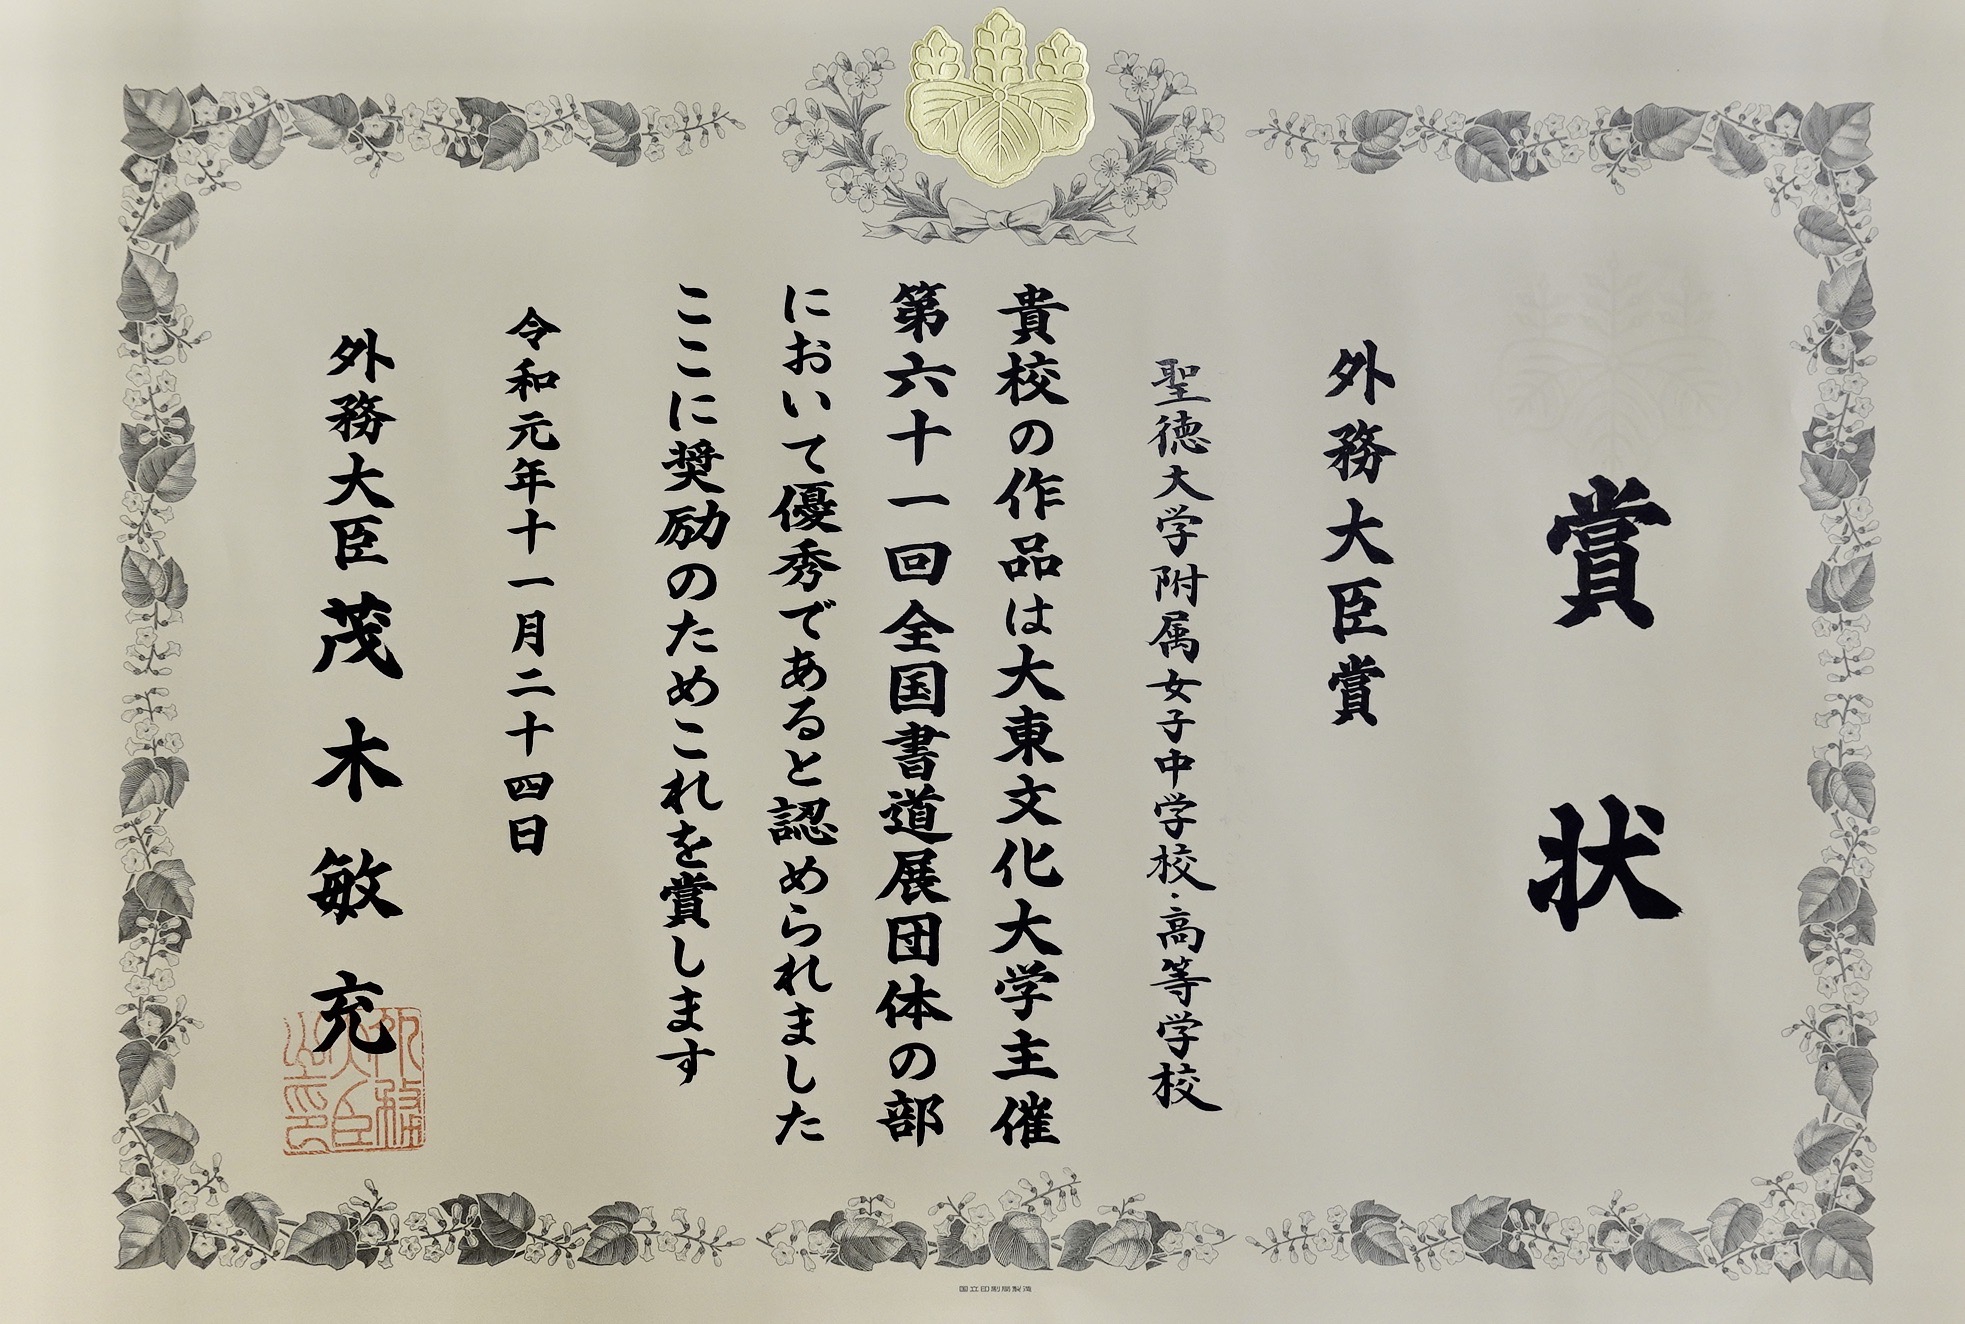 賞状
外務大臣賞
聖徳大学附属女子中学校・高等学校
貴校の作品は大東文化大学主催
第六十一回全国書道展団体の部
において優秀であると認められました
ここに奨励のためこれを賞します
令和元年十一月二十四日
外務大臣茂木敏充
外務大臣之印
国立印刷局製造